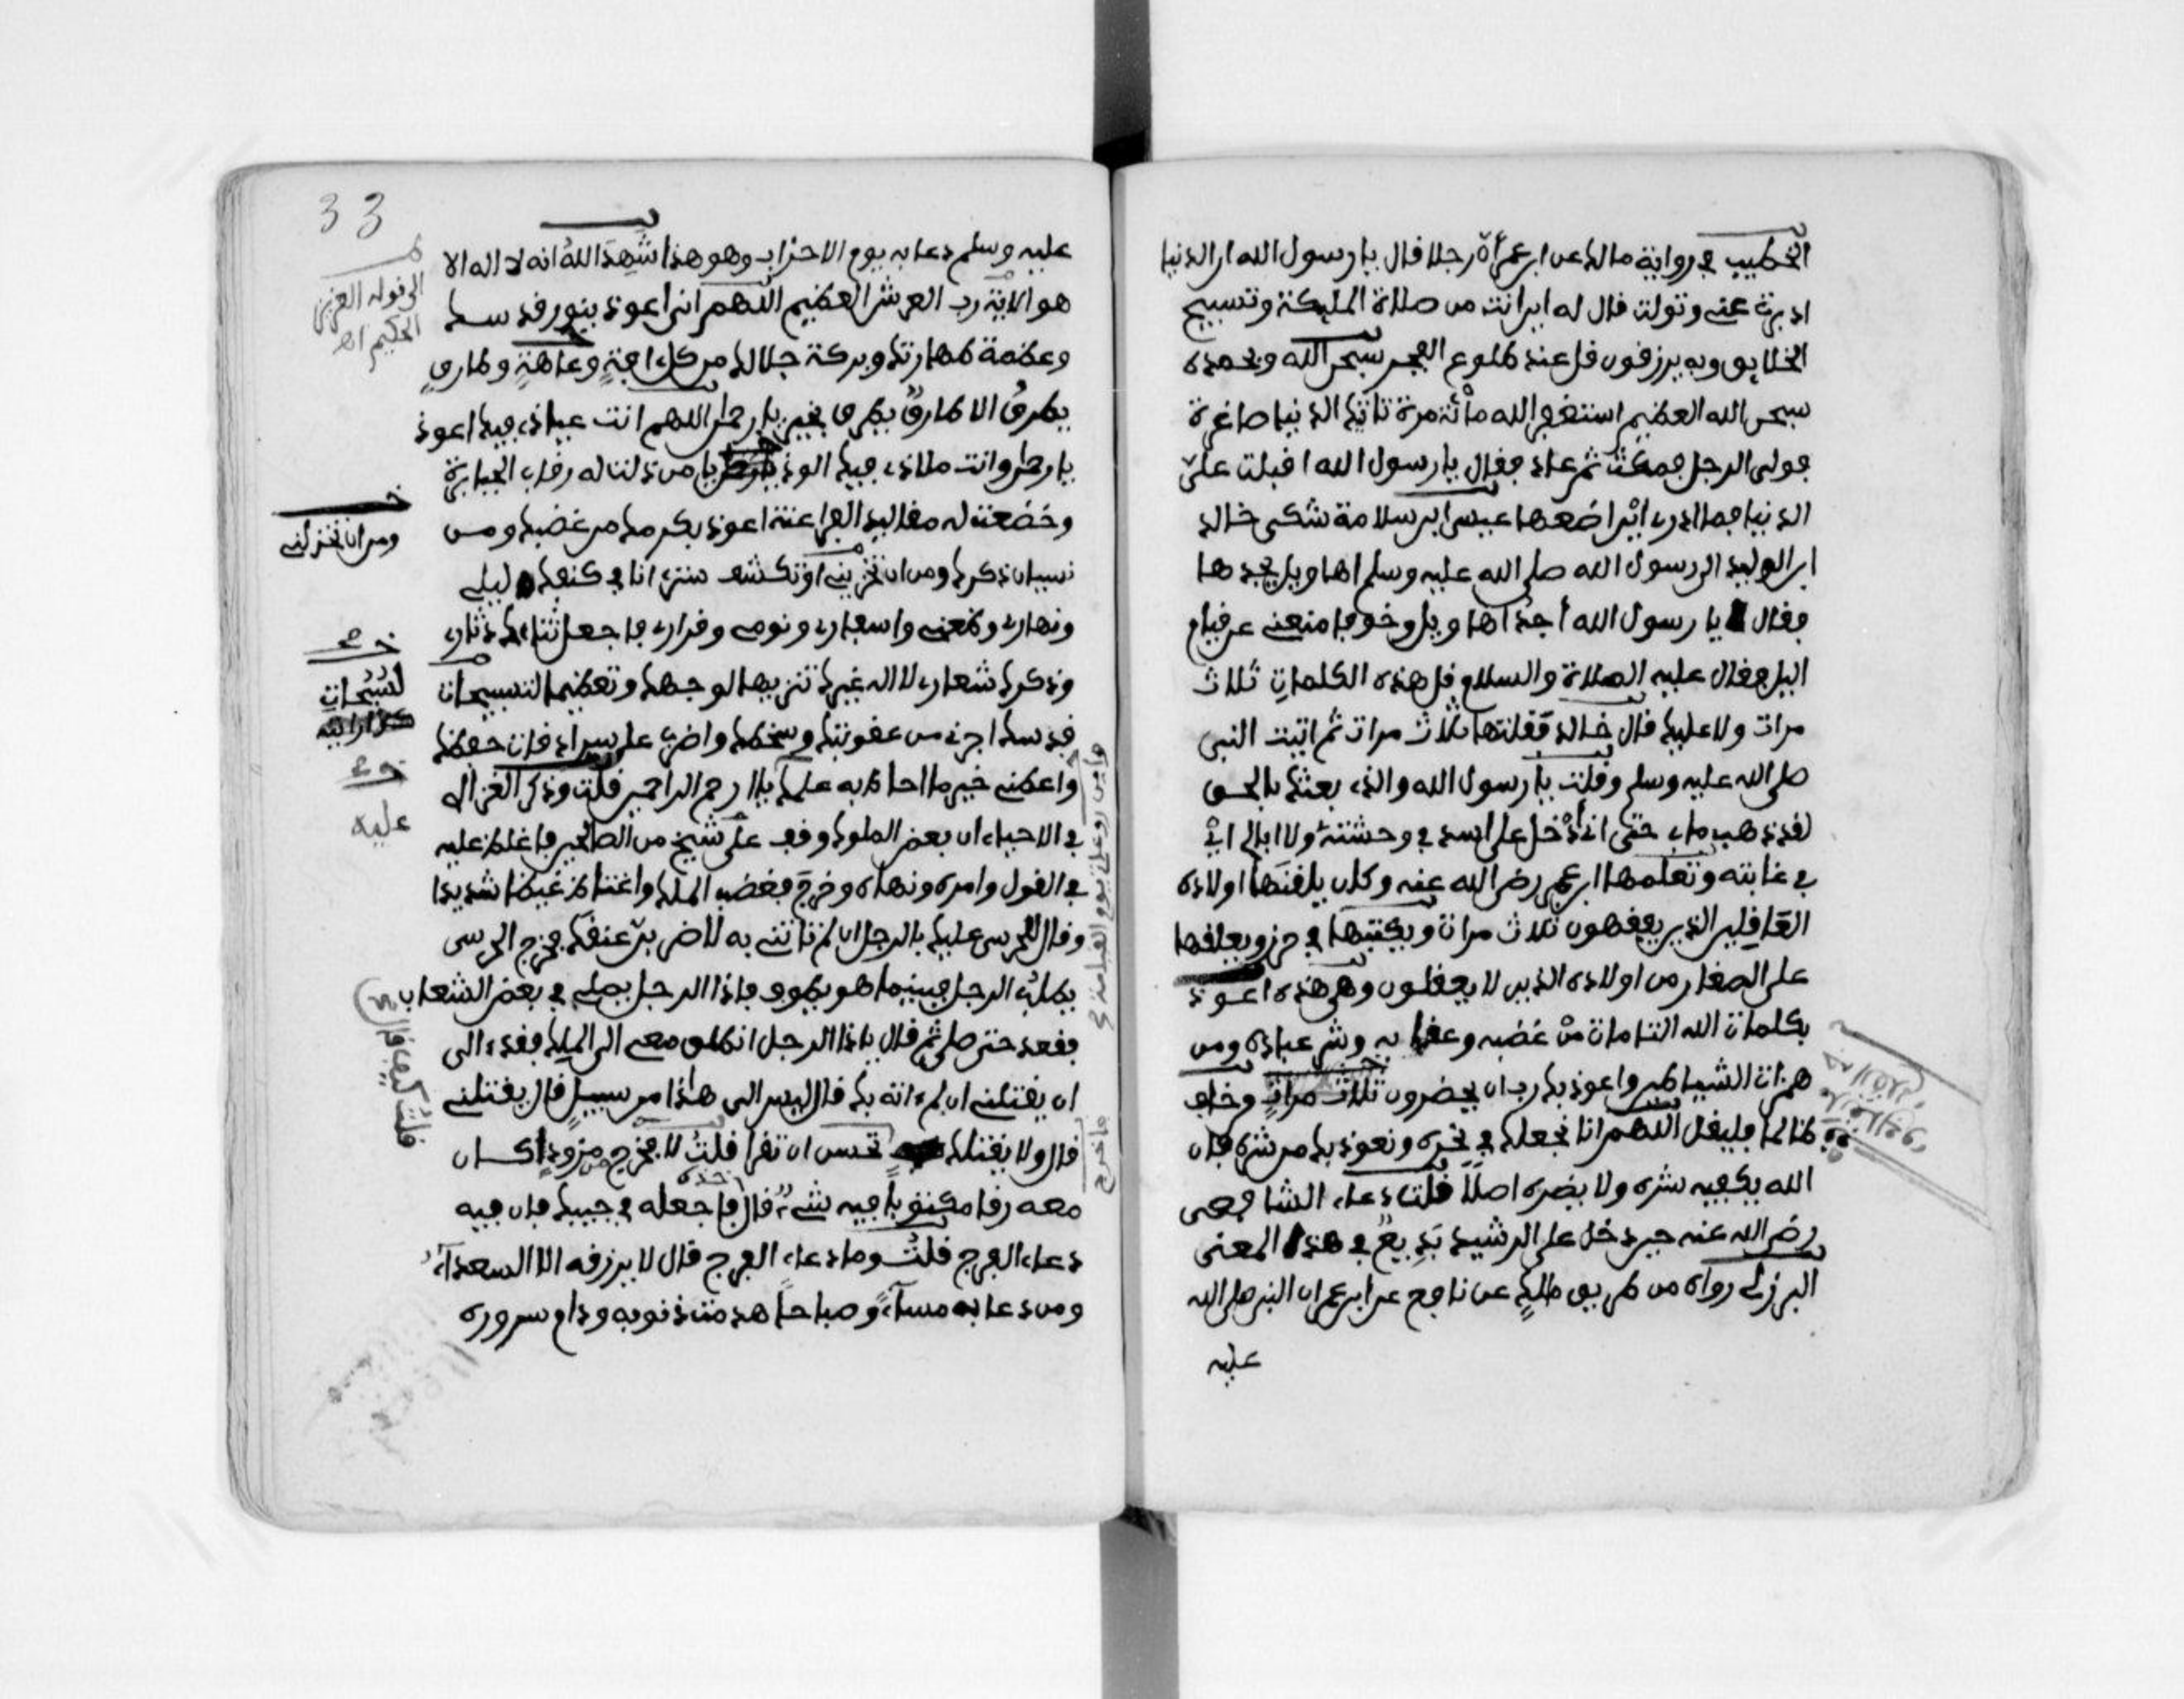 الخطيب في رواية مالك عن ابن عمر أن رجلا قال يا رسول الله ان الدنيا
ادبرت عني وتولت قال له اين انت من صلاة المليكة وتسبيح
الخلايق وبه يرزقون قل عند طلوع الفجر سبحن الله وبحمده
سبحن الله العظيم استغفر الله مائة مرة تاتيك الدنيا صاغرة
فولى الرجل فمكث ثم عاد فقال يا رسول الله اقبلت علي
الدنيا فما ادري اين اضعها عيسى بن سلامة شكى خالد
ابن الوليد الى رسول الله صلى الله عليه وسلم اهاويل يجدها
فقال يا رسول الله أجد اهاويل وخوفا منعني عن قيام
اليل فقال عليه الصلاة والسلام قل هذه الكلمات ثلاث
مرات ولا عليك قال خالد فقلتها ثلاث مرات ثم اتيت النبي
صلى الله عليه وسلم وقلت يا رسول الله والذي بعثك بالحق
لقد ذهب ما بي حتى اني أدخل على اسد في وحشته ولا ابالي اي
في غابته وتعلمها ابن عمر رضي الله عنه وكان يلقنها اولاده
العاقلين الذين يعقلون ثلاث مرات ويكتبها في حرز ويعلقها
على الصغار من اولاده الذين لا يعقلون وهي هذه اعوذ
بكلمات الله التامات من غضبه وعقابه وشر عباده ومن
همزات الشياطين واعوذ بك رب ان يحضرون ثلاث مرات وخاف
ظالما فليقل اللهم انا نجعلك في نحره ونعوذ بك من شره فان
الله يكفيه شره ولا يضره اصلا قلت دعاء الشافعي
رضي الله عنه حين دخل على الرشيد بديع في هذا المعنى
البرزلي رواه من طريق مالك عن نافع عن ابن عمر ان النبي صلى الله
عليه
33
عليه وسلم دعا به يوم الاحزاب وهو هذا شهد الله انه لا اله الا
هو الاية رب العرش العظيم اللهم اني اعوذ بنور قدسك
وعظمة طهارتك وبركة جلالك من كل افة وعاهة وطارق
يطرق الا طارق يطرق بخير يا رحمن اللهم انت عياذي فبك اعوذ
يا رحمن وانت ملاذي فبك الوذ يا من ذلت له رقاب الجبابرة
وخضعت له مقاليد الفراعنة اعوذ بكرمك من غضبك ومن
نسيان ذكرك ومن ان تخزيني او تكشف ستري انا في كنفك ليلي
ونهاري وظعني واسفاري ونومي وقراري فاجعل ثناءك دثاري
وذكرك شعاري لا اله غيرك تنزيها لوجهك وتعظيما لتسبيحات
قدسك اجرني من عقوبتك وسخطك واضرب علي سرادقات حفظك
واعطني خير ما احاط به علمك يا ارحم الراحمين قلت وذكر الغزالي
في الاحياء ان بعض الملوك وقف على شيخ من الصالحين فاغلظ عليه
في القول وامره ونهاه وخرج فغضب الملك واغتاظ غيظا شديدا
وقال للحرسي عليك بالرجل ان لم تاتني به لاضربن عنقك فخرج الحرسي
يطلب الرجل فبينما هو يطوف فاذا الرجل يصلي في بعض الشعاب
فقعد حتى صلى ثم قال يا هذا الرجل انطلق معي الى الملك فقد الى
ان يقتلني ان لم اته بك قال ليس الى هذا من سبيل قال يقتلني
قال ولا يقتلك تحسن ان تقرا قلت لا فخرج من مزود كان
معه رقا مكتوبا فيه شيء قال خذه فاجعله في جيبك فان فيه
دعاء الفرج قلت وما دعاء الفرج قال لا يرزقه الا السعداء
ومن دعا به مساء وصباحا هدمت ذنوبه ودام سروره
الى قوله العزيز
الحكيم اه
ومن ان تخزني
لسبحات
عليه
قلت كيف قال